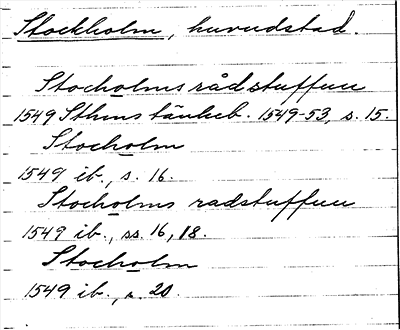 Stockholm, huvudstad.
Stocholms rådstuffuu
1549 Sthms tänkeb. 1549-53, s. 15.
Stocholm
1549 ib., s. 16.
Stocholms radstuffuu
1549 ib., ss. 16, 18.
Stocholm
1549 ib., s. 20.